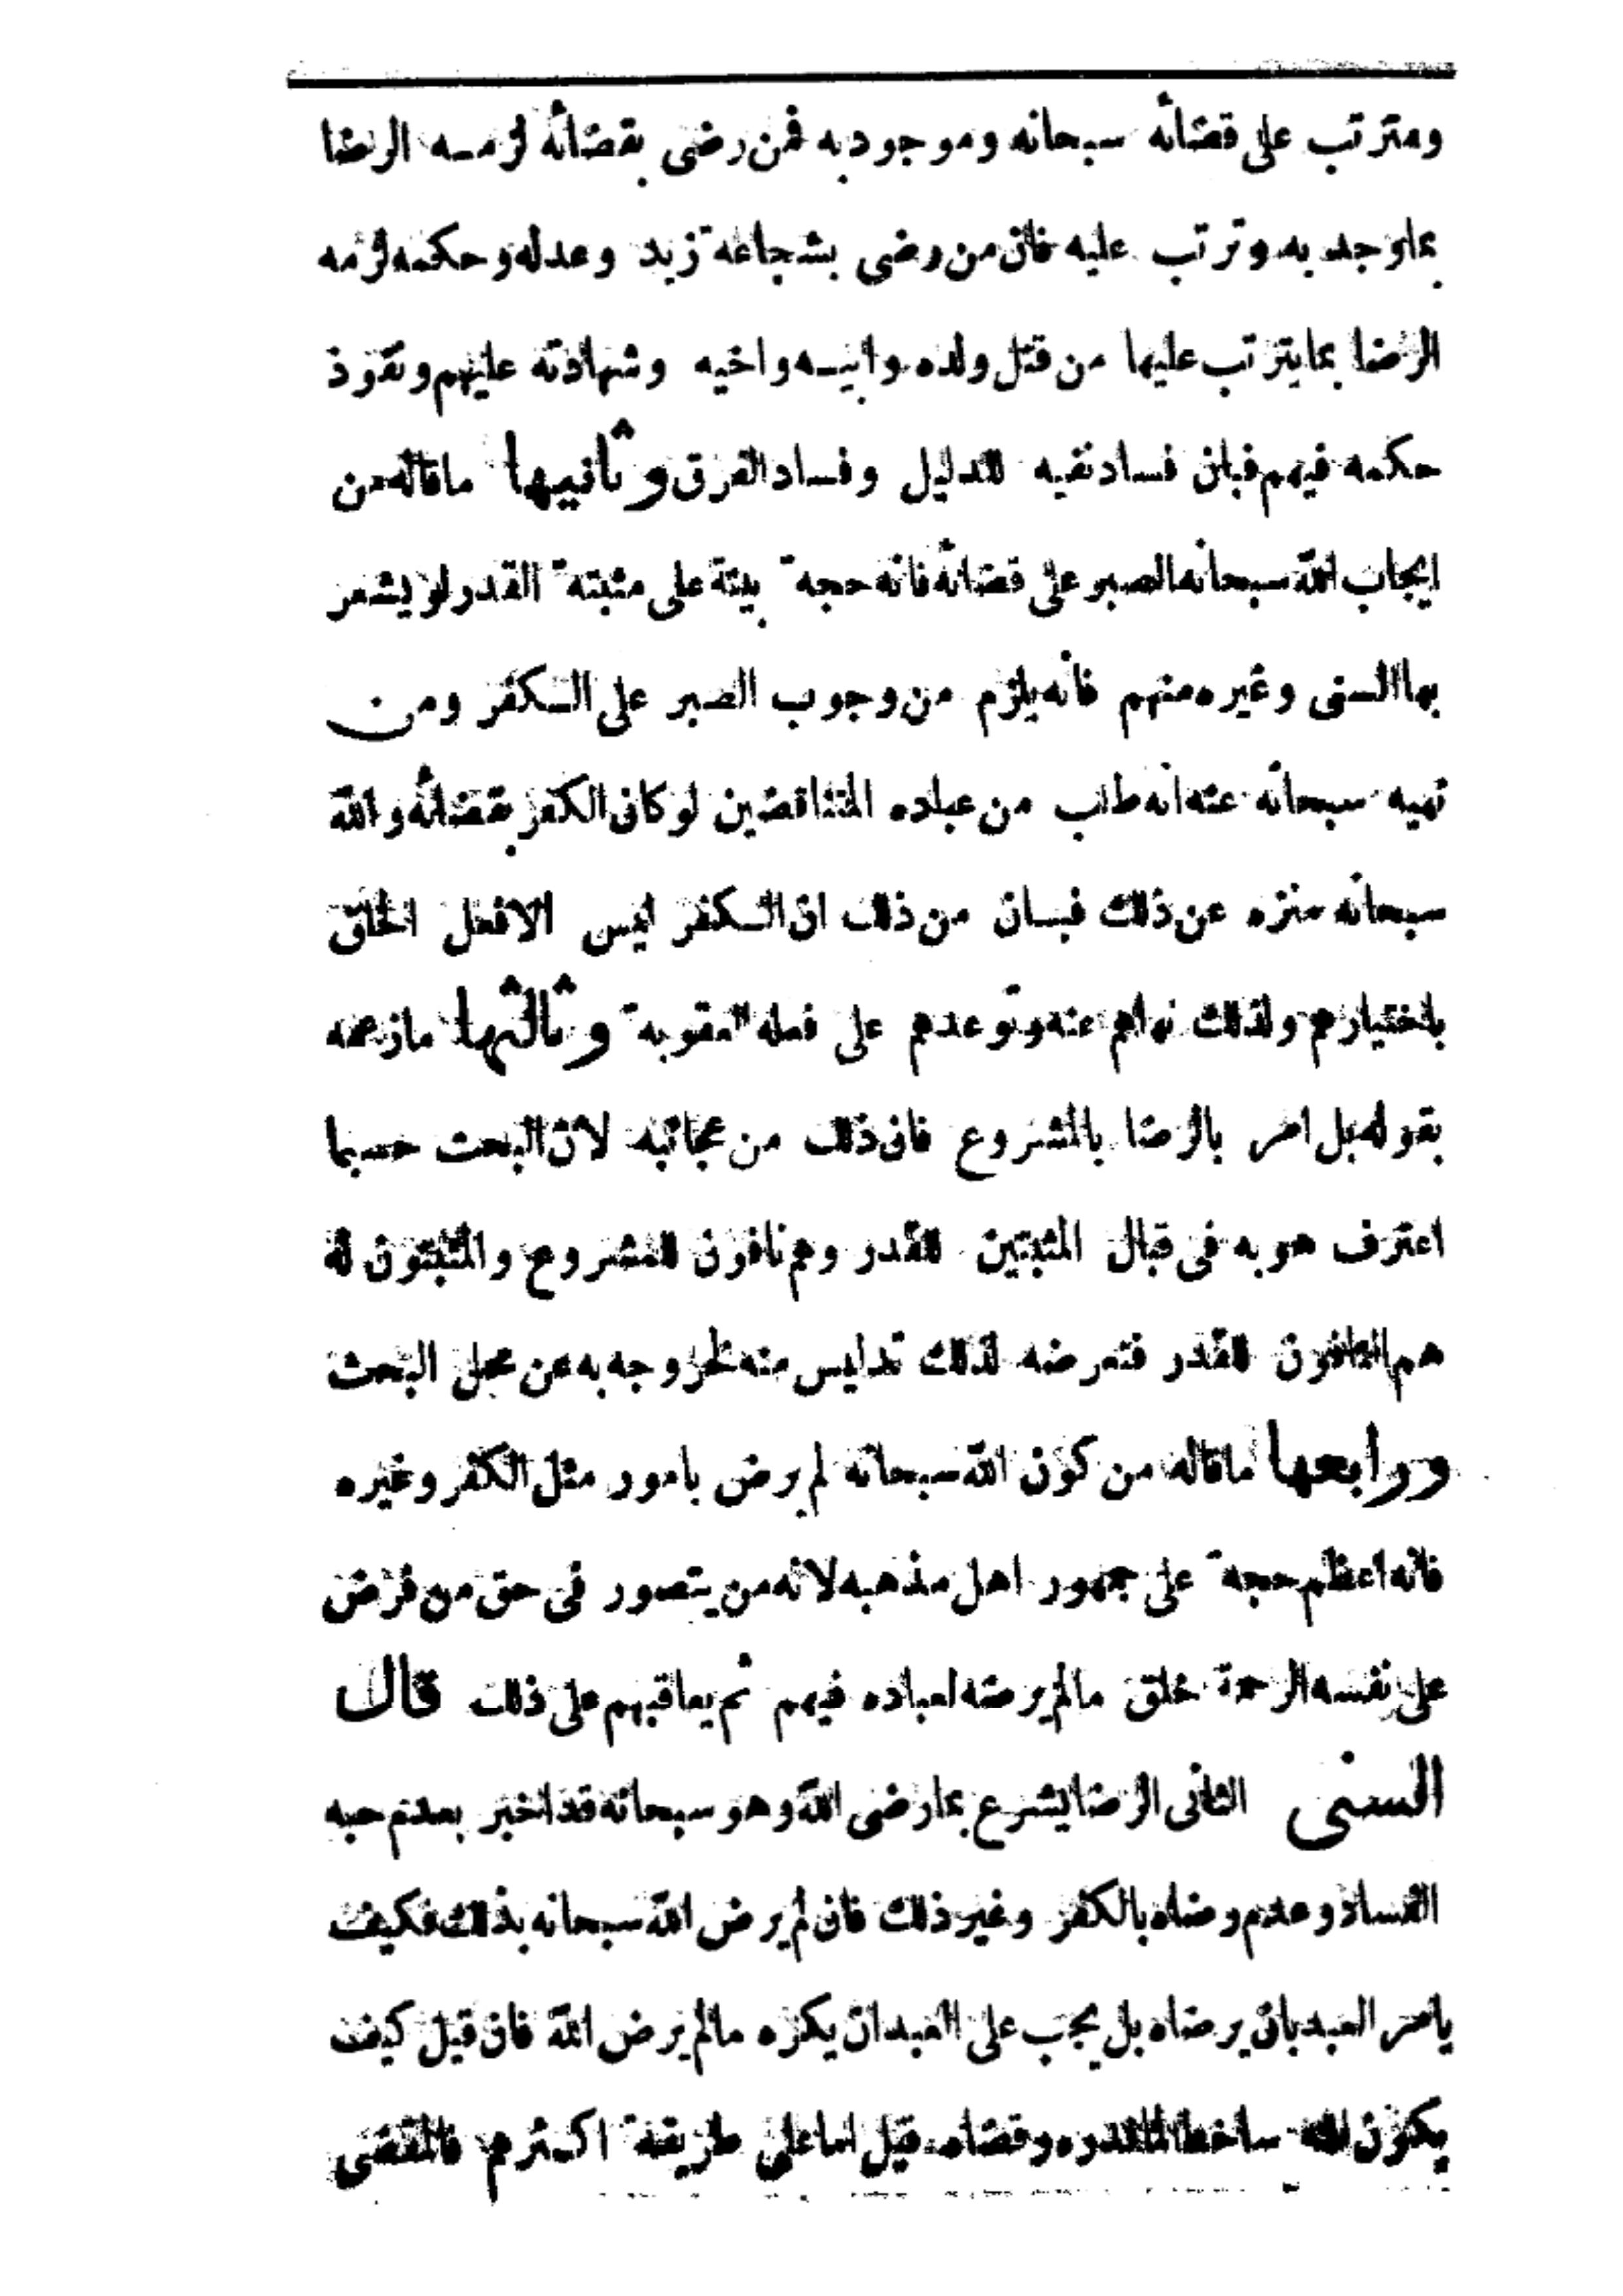 ومترتب على قضائه سبحانه وموجود به فمن رضى بقضائه لزمه الرضا
بما وجد به وترتب عليه فان من رضى بشجاعة زيد وعدله وحكمه لزمه
الرضا بما يترتب عليها من قتل ولده وابيه واخيه وشهادته عليهم ونفوذ
حكمه فيهم فبان فساد نفيه للدليل وفساد الفرق وثانيها ما قاله من
ايجاب الله سبحانه الصبر على قضائه فانه حجة بينة على مثبتة القدر لو يشعر
بها السنى وغيره منهم فانه يلزم من وجوب الصبر على الكفر ومن
نهيه سبحانه عنه انه طالب من عباده المتناقضين لو كان الكفر بقضائه والله
سبحانه منزه عن ذلك فبان من ذلك ان الكفر ليس الا فعل الخلق
باختيارهم ولذلك نهاهم عنه وتوعدهم على فعله العقوبة وثالثها ما زعمه
بقوله بل امر بالرضا بالمشروع فان ذلك من عجائبه لان البحث حسبما
اعترف هو به فى قبال المثبتين للقدر وهم نافون للمشروع والمثبتون له
هم النافون للقدر فتعرضه لذلك تدليس منه لخروجه به عن محل البحث
ورابعها ما قاله من كون الله سبحانه لم يرض بامور مثل الكفر وغيره
فانه اعظم حجة على جمهور اهل مذهبه لانه من يتصور فى حق من فرض
على نفسه الرحمة خلق ما لم يرضه لعباده فيهم ثم يعاقبهم على ذلك قال
السنى الثانى الرضا يشرع بما رضى الله وهو سبحانه قد اخبر بعدم حبه
الفساد وعدم رضاه بالكفر وغير ذلك فان لم يرض الله سبحانه بذلك فكيف
يامر العبد بان يرضاه بل يجب على العبد ان يكره ما لم يرض الله فان قيل كيف
يكون الله ساخطا لما قدره وقضاه قيل اما على طريقة اكثرهم فالمقضى